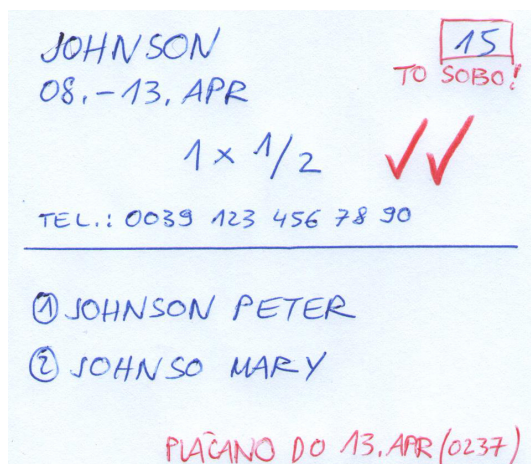 JOHNSON
15
TO SOBO!
08.-13. APR
1 x 1/2
TEL.: 0039 123 456 78 90
① JOHNSON PETER
② JOHNSO MARY
PLAČANO DO 13. APR (0237)